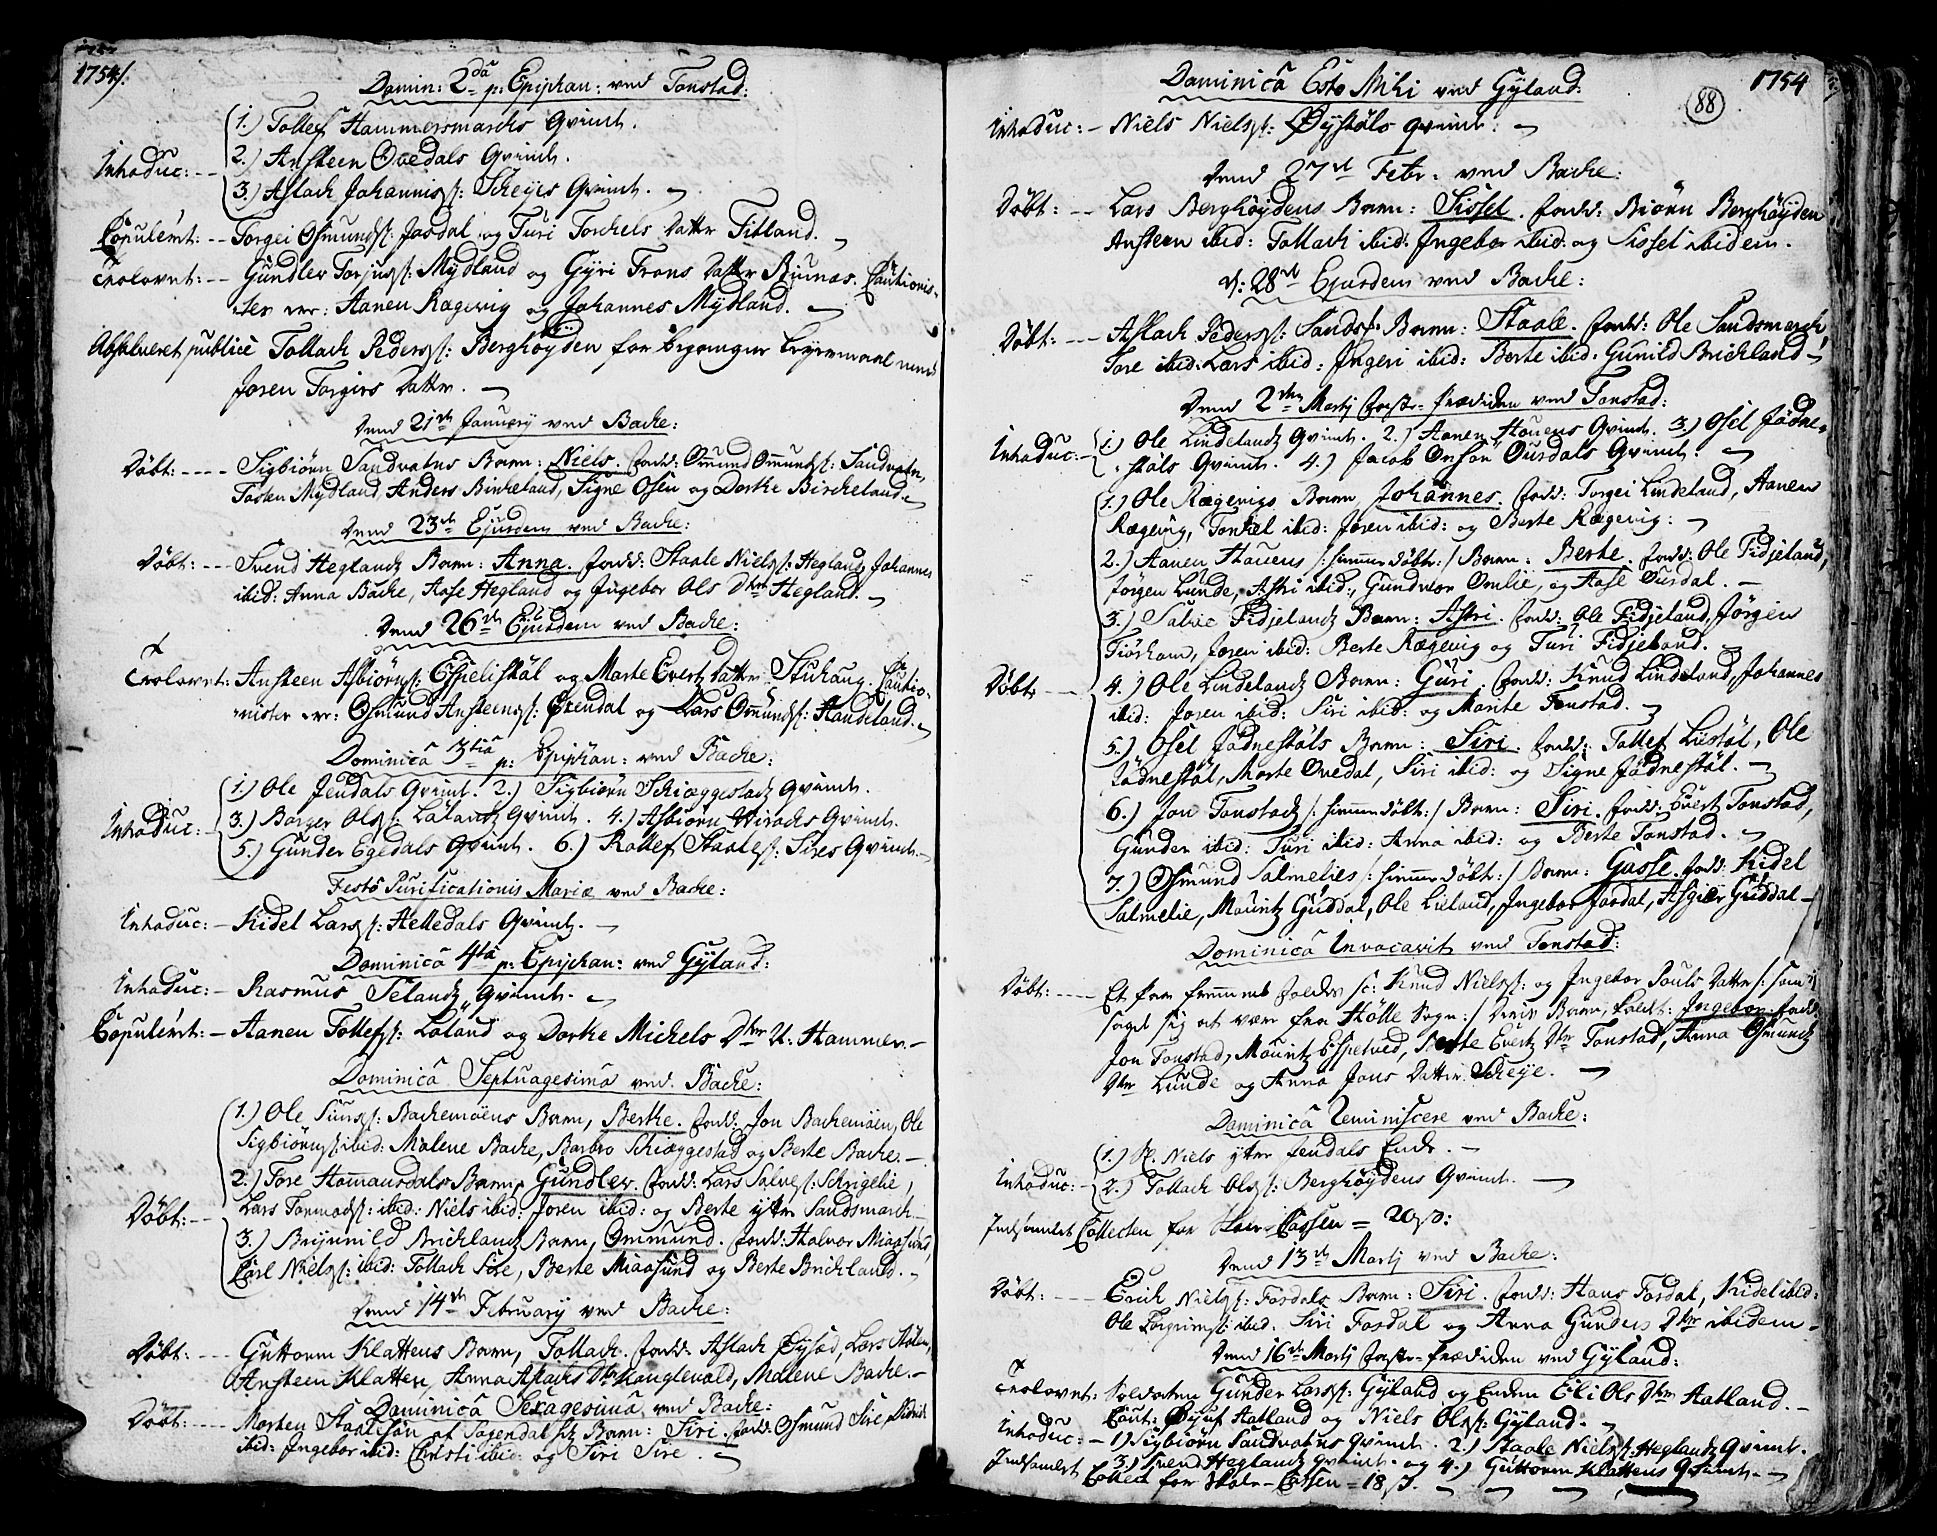 1754/.
Domin: 2da p: Epiphan: ved Tonstad:
1.) Tollef Hammersmarchs Qvinde.
2.) Ansteen Ovedals Qvinde.
Introduc: -- 3.) Aslach Johanniss: Scheyes Qvinde. -
Copuleret: -- Torgei Osmunds: Josdal og Turi Torchels Datter Fitland. -
Trolovet: -- Gundlev Torjus: Mydland og Gyri Frans Datter Biunæs. Cautionis-
ter er: Aanen Rægevig og Johannes Mydland. -
Absolveret publicè Tollach Peders: Berghøyden for begangne Leyermaal med
Joren Torgiers Datter. -
Dend 21de January ved Backe:
Døbt: ---- Sigbiørn Sandvatns Barn: Niels. Fadd: Omund Omunds: Sandvatn,
Tosten Mydland, Anders Birkeland, Signe Osen og Dorthe Birckeland. -
Dend 23de Ejusdem ved Backe:
Døbt: --- Svend Heglands Barn: Anna. Fadd: Staale Niels: Hegland, Johannes
ibid: Anna Backe, Aase Hegland og Ingebor Ols Dtter Hegland. -
Dend 26de Ejusdem ved Backe:
Trolovet: Ansteen Asbiørns: Espelistøl og Marte Everts Datter Stuhaug. Cautio-
nister er: Osmund Ansteens: Øxendal og Lars Omunds: Haudeland. -
Dominica 3tia p: Epiphan: ved Backe:
1.) Ole Jendals Qvinde. 2.) Sigbiørn Schiæggestads Qvinde.
Introduc: - 3.) Borger Ols: Lalands Qvinde. 4.) Asbiørn Virachs Qvinde.
5.) Gunder Egedals Qvinde. 6.) Rollef Staales: Sires Qvinde. -
Festo Purificationis Mariæ ved Backe:
Introduc: - Kidel Lars: Helledals Qvinde. -
Dominica 4ta p: Epiphan: ved Gyland:
Introduc: - Rasmus Selands Qvinde. -
Copuleret: - Aanen Tollefs: Loland og Dorthe Michels Dtter U. Hammer. -
Dominica Septuagesima ved Backe:
1.) Ole Siurs: Backemoens Barn, Berthe. Fadd: Jon Backemoen, Ole
Sigbiørns: ibid: Malene Backe, Barbro Schiæggestad og Berte Backe. -
2.) Tore Homansdals Barn, Gundlev. Fadd: Lars Salves: Schrigelie,
Lars Tarmods: ibid: Niels ibid: Joren ibid: og Berte ytre Sandsmarch -
Døbt: -- 3.) Brynnild Bricklands Barn, Ommund. Fadd: Halvor Miaasund,
Carl Niels: ibid: Tollach Sire, Berte Miaasund og Berte Brickland. -
Dend 14de February ved Backe:
Døbt: --- Guttorm Klattens Barn, Tollach. Fadd: Aslach Øysæd, Lars Stølen,
Ansteen Klatten, Anna Aslachs Dtter Hauglevold, Malene Backe. -
Dominica Sexagesima ved Backe:
Døbt: ---- Morten Staalesøn af Sogendal Barn: Siri. Fadd: Osmund Sire,
ibid: Ingebor ibid: Christi ibid: og Siri Sire. -
1754
88
Dominica Esto Mihi ved Gyland:
Introduc: - Niels Niels: Øystøls Qvinde: -
Dend 27de Febr: ved Backe:
Døbt: -- Lars Berghøydens Barn: Sissel. Fadd: Biørn Berghøyden
Ansteen ibid: Tollach ibid: Ingebor ibid: og Sissel ibidem.
d: 28de Ejusdem ved Backe:
Døbt: --- Aslach Peders: Sands: Barn: Staale. Fadd: Ole Sandsmarch,
Tore ibid: Lars ibid: Ingeri ibid: Berte ibid: Gunild Brickland -
Dend 2den Martj Faste-Prædiken ved Tonstad:
1.) Ole Lindelands Qvinde. 2.) Aanen Houens Qvinde. 3.) Osel Jødne-
Introduc: - støls Qvinde. 4.) Jacob Ousdals Qvinde. -
1.) Ole Rægevigs Barn Johannes. Fadd: Torgei Lindeland, Aanen
Rægevig, Tonkel ibid: Joren ibid: og Berte Rægevig: -
2.) Aanen Houens /: hiemme døbte :/ Barn: Berte. Fadd: Ole Fidjeland,
Jørgen Lunde, Astri ibid:, Gundvor Omlie, og Aase Ousdal. -
3.) Salve Fidjelands Barn: Astri. Fadd: Ole Fidjeland, Jørgen
Fiørham, Joren ibid: Berte Rægevig og Turi Fidjeland. -
Døbt --- 4.) Ole Lindelands Barn: Guri. Fadd: Knud Lindeland, Johannes
ibid: Joren ibid: Siri ibid: og Marite Tonstad. -
5.) Osel Jødnestøls Barn: Siri. Fadd: Tollef Liistøl, Ole
Jødnestøl, Marte Ovedal, Siri ibid: og Signe Jødnestøl. -
6.) Jon Tonstads /: hiemme døbt :/ Barn: Siri. Fadd: Evert Tonstad,
Gunder ibid: Turi ibid: Anna ibid: og Berte Tonstad. -
7.) Osmund Salmelies /: hiemme døbt :/ Barn: Gasse. Fadd: Kidel
Salmelie, Mouritz Guddal, Ole Lieland, Ingebor Josdal, Asgier Guddal -
Dominica Invocavit ved Tonstad:
Døbt: ---- Et par fremmede Folckes /: Knud Niels: og Ingebor Pouls Datter /: som
saget sig at være fra Holle Sogn :/ Deris Barn, kaldt: Ingebor. Fadd:
Jon Tonstad, Mouritz Espetved, Berte Everts Dtter Tonstad, Anna Osmunds
Dtter Lunde og Anna Jons Datter Scheye. -
Dominica Reminiscere ved Backe:
1.) Niels ytre Jendals Encke. -
Introduc: - 2.) Tollach Ols: Berghøydens Qvinde. -
Indsamlet Collecten for Skole-Cassen = 20 s:
Dend 13de Martj ved Backe:
Døbt: ---- Erich Niels: Fosdals Barn: Siri. Fadd: Hans Fosdal, Kidel ibid:
Ole Torgrims: ibid: Siri Fosdal og Anna Gunders Dtter ibidem -
Dend 16de Martj Faste-Prædiken ved Gyland:
Trolovet: Soldaten Gunder Lars: Gyland og Enken Eli Ols Dtter Aatland. -
Caut: Øyuf Aatland og Niels Ols: Gyland. -
Introduc: - 1.) Sigbiørn Sandvatns Qvinde. 2.) Staale Niels: Heglands Qvinde.
3.) Svend Heglands Qvinde. og 4.) Guttorm Klattens Qvinde. -
Indsamlet Collect for Skole-Cassen = 18 s.